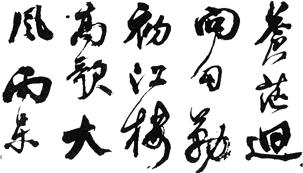 蒼茫迴
向句勒
初江樓
高歌大
風雨